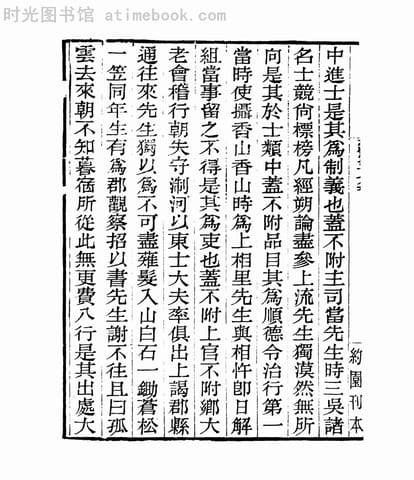 时光图书馆 atimebook.com
中進士是其為制義也蓋不附主司當先生時三吳諸
名士競尚標榜凡經朔論盡參上流先生獨漠然無所
向是其於士類中蓋不附品目其為順德令治行第一
當時使攝香山香山時為上相里先生與相忤卽日解
組當事留之不得是其為吏也蓋不附上官不附鄉大
老會稽行朝失守淛河以東士大夫率俱出上謁郡縣
通往來先生獨以為不可盡薙髮入山白石一鋤蒼松
一笠同年生有為郡觀察招以書先生謝不往且曰孤
雲去來朝不知暮宿所從此無更費八行是其出處大
約園刊本